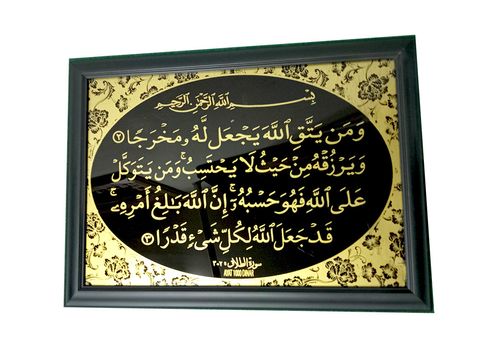 بِسْمِ اللَّهِ الرَّحْمَٰنِ الرَّحِيمِ
وَمَن يَتَّقِ ٱللَّهَ يَجْعَل لَّهُۥ مَخْرَجًا ٢
وَيَرْزُقْهُ مِنْ حَيْثُ لَا يَحْتَسِبُ ۚ وَمَن يَتَوَكَّلْ
عَلَى ٱللَّهِ فَهُوَ حَسْبُهُۥٓ ۚ إِنَّ ٱللَّهَ بَـٰلِغُ أَمْرِهِۦ ۚ
قَدْ جَعَلَ ٱللَّهُ لِكُلِّ شَىْءٍ قَدْرًا ٣
سورة الطلاق ٢،٣
AYAT 1000 DINAR